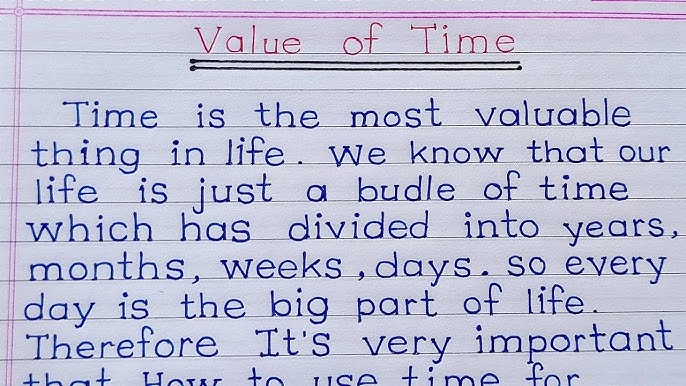 Value of Time
Time is the most valuable
thing in life. We know that our
life is just a budle of time
which has divided into years,
months, weeks, days. So every
day is the big part of life.
Therefore It's very important
that How to use time for